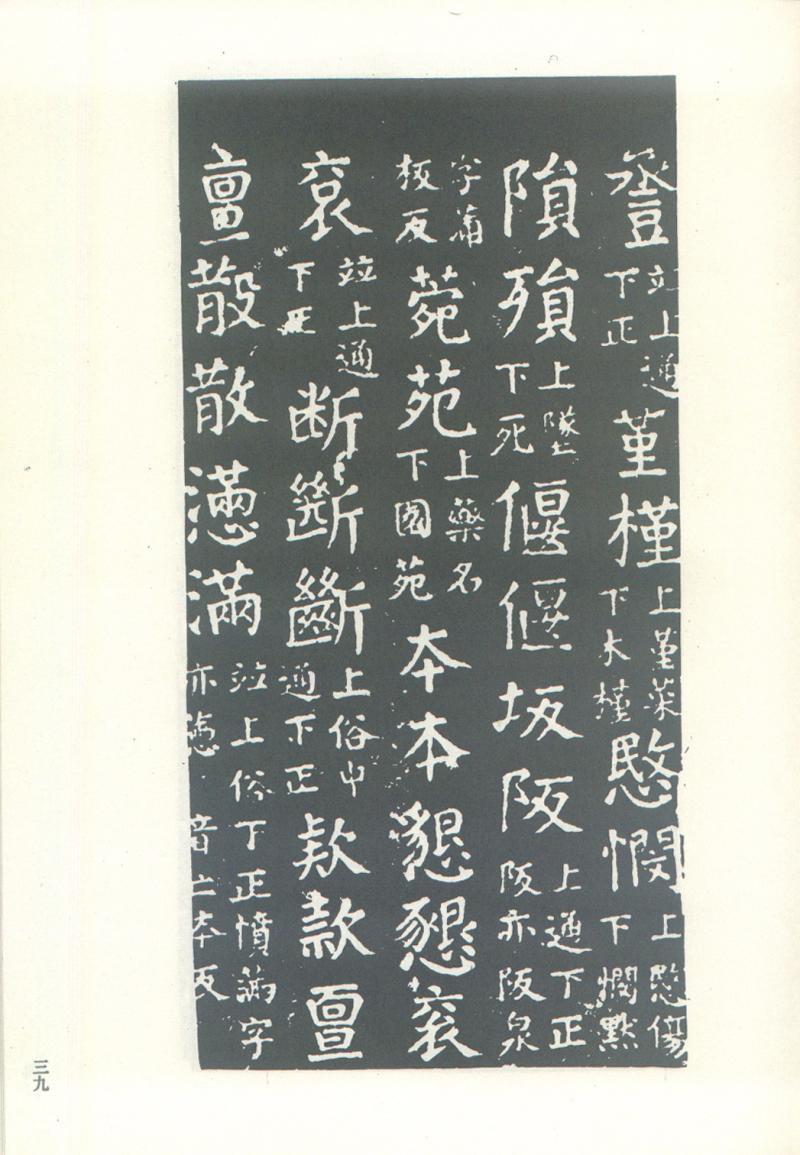 並上通下正堇槿上堇菜下木槿愍憫上愍傷下憫默
隕殞上墜下死偃偃坂阪上通下正阪亦阪泉
字蒲板反菀苑上藥名下園苑夲本懇懇衮
衮並上通下正断斷上俗中通下正欵款亶
亶散散懣滿並上俗下正憤滿字亦懣音亡夲反
三九